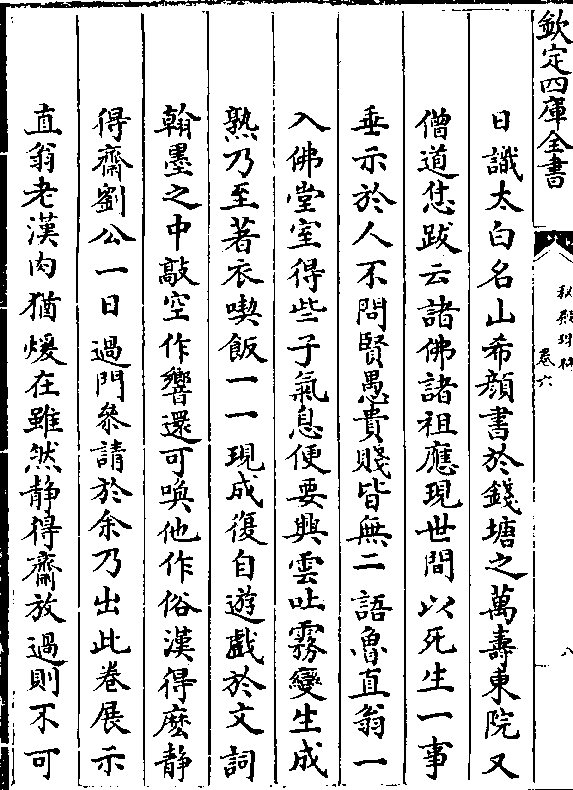 欽定四庫全書
秘殿珠林
卷六
八
日識太白名山希顔書於錢塘之萬壽東院又
僧道恁跋云諸佛諸祖應現世間以死生一事
垂示於人不問賢愚貴賤皆無二語魯直翁一
入佛堂室得些子氣息便要興雲吐霧變生成
熟乃至著衣喫飯一一現成復自遊戲於文詞
翰墨之中敲空作響還可喚他作俗漢得麽静
得齋劉公一日過門叅請於余乃出此卷展示
直翁老漢肉猶煖在雖然静得齋放過則不可